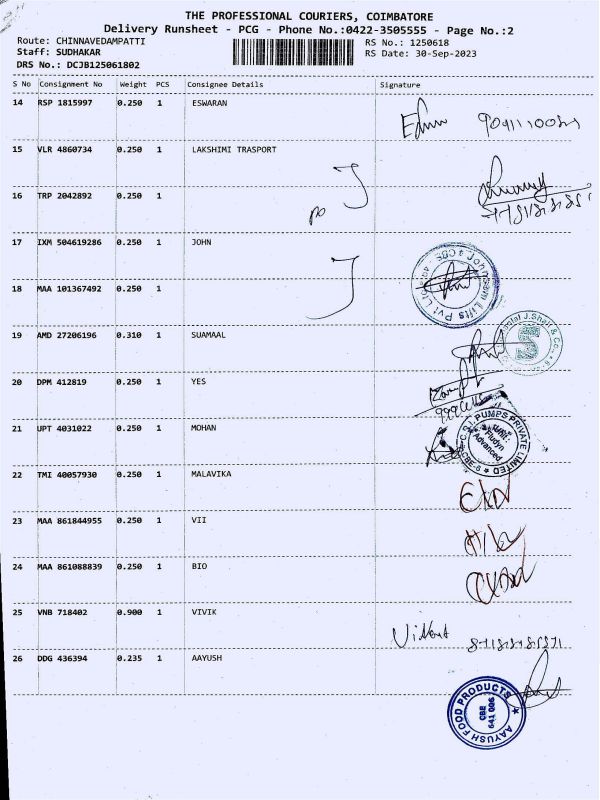 THE PROFESSIONAL COURIERS, COIMBATORE
Delivery Runsheet - PCG - Phone No.:0422-3505555 - Page No.:2
Route: CHINNAVEDAMPATTI RS No.: 1250618
Staff: SUDHAKAR RS Date: 30-Sep-2023
DRS No.: DCJB125061802
S No Consignment No Weight PCS Consignee Details Signature
14 RSP 1815997 0.250 1 ESWARAN
15 VLR 4860734 0.250 1 LAKSHIMI TRASPORT
16 TRP 2042892 0.250 1
17 IXM 504619286 0.250 1 JOHN
18 MAA 101367492 0.250 1
19 AMD 27206196 0.310 1 SUAMAAL
20 DPM 412819 0.250 1 YES
21 UPT 4031022 0.250 1 MOHAN
C.R.I. PUMPS PRIVATE LIMITED
Unit:
Fludyn
Advanced
CBE-6
22 TMI 40057930 0.250 1 MALAVIKA
23 MAA 861844955 0.250 1 VII
24 MAA 861088839 0.250 1 BIO
25 VNB 718402 0.900 1 VIVIK
26 DDG 436394 0.235 1 AAYUSH
AAYUSH FOOD PRODUCTS
CBE
641 006